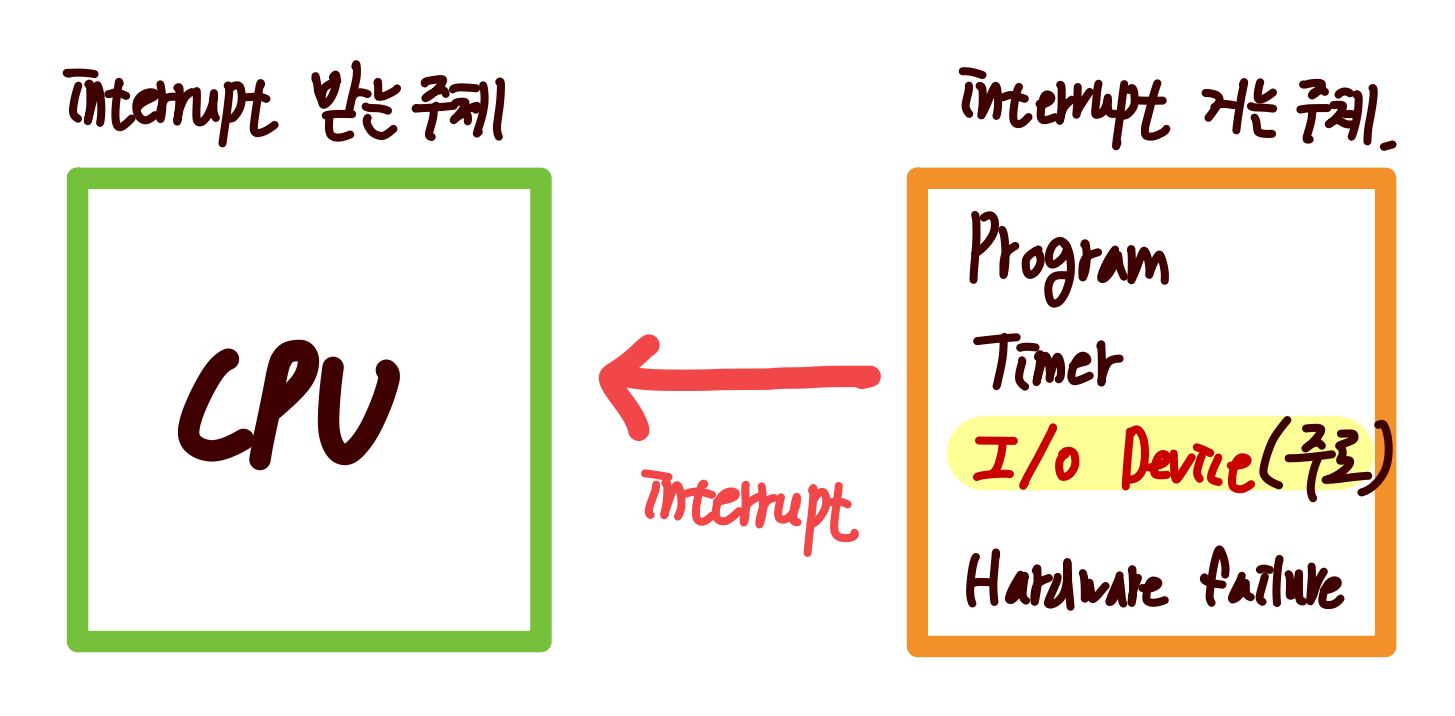 interrupt 받는 주체
interrupt 거는 주체.
CPU
interrupt
Program
Timer
I/O Device (주로)
Hardware failure